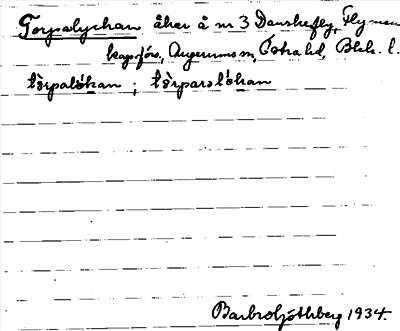 Torpalyckan åker å nr 3 Danskefly, Flymen
kapsförs., Augerums sn, Östra hd, Blek. l.
tòrpalókan ; tòrparalókan
Barbro Göthberg 1934.